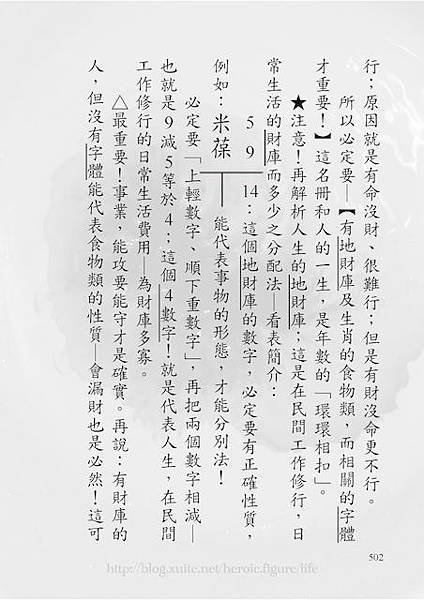 行；原因就是有命沒財、很難行；但是有財沒命更不行。
所以必定要—【有地財庫及生肖的食物類，而相關的字體
才重要！】這名冊和人的一生，是年數的「環環相扣」。
★注意！再解析人生的地財庫；這是在民間工作修行，日
常生活的財庫而多少之分配法—看表簡介：
5 9 14：這個地財庫的數字，必定要有正確性質，
例如：米葆——能代表事物的形態，才能分別法！
必定要「上輕數字、順下重數字」，再把兩個數字相減—
也就是9減5等於4；這個4數字！就是代表人生，在民間
工作修行的日常生活費用—為財庫多寡。
△最重要！事業，能攻要能守才是確實。再說：有財庫的
人，但沒有字體能代表食物類的性質—會漏財也是必然！這可
502
http://blog.xuite.net/heroic.figure/life